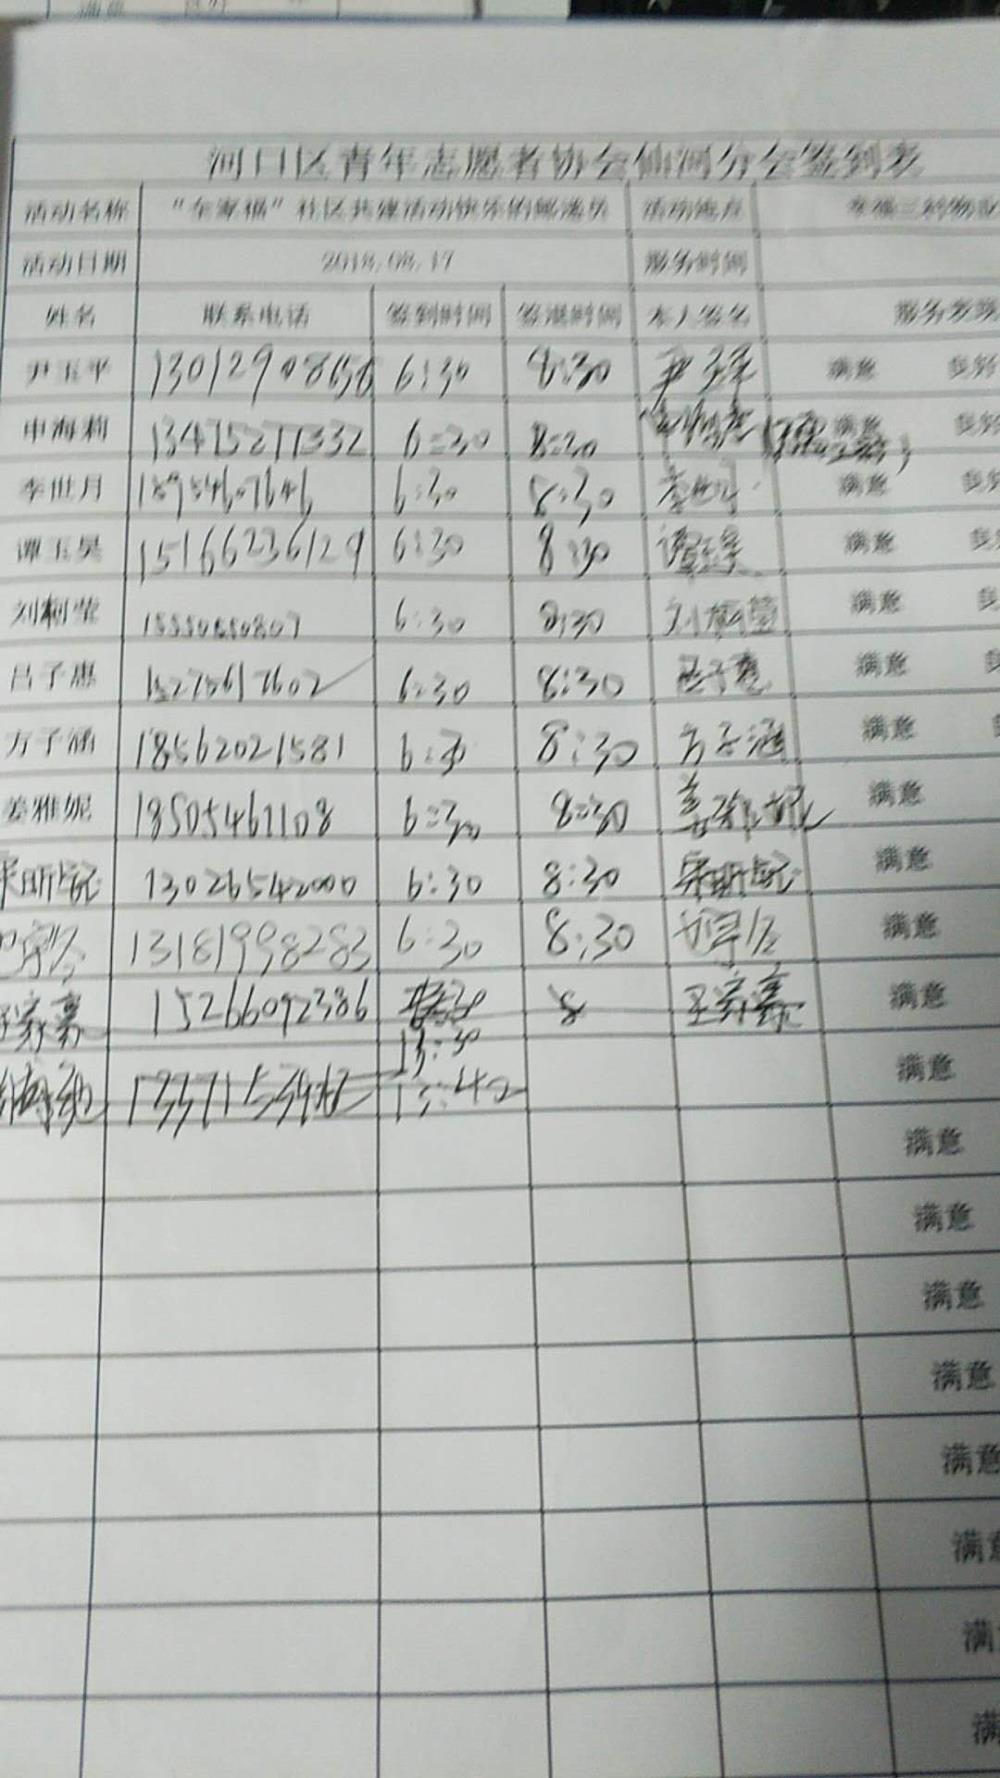 河口区青年志愿者协会仙河分会签到表
活动名称 “全家福”社区共建活动快乐的邮递员 活动地点 幸福三村物业
活动日期 2018.08.17 服务时间
姓名 联系电话 签到时间 签退时间 本人签名 服务表现
尹玉平 13012908656 6:30 8:30 尹玉平 满意 良好
申海莉 13475271332 6:30 8:30 满意 良好
李世月 18954607646 6:30 8:30 李世月 满意 良好
谭玉昊 15166236129 6:30 8:30 谭玉昊 满意 良
刘桐莹 15550650807 6:30 8:30 刘桐莹 满意 良
吕子惠 15275617602 6:30 8:30 吕子惠 满意 良
方子涵 18562021581 6:30 8:30 方子涵 满意 良
姜雅妮 18505461108 6:30 8:30 姜雅妮 满意
宋昕妮 13026542000 6:30 8:30 宋昕妮 满意
13181998283 6:30 8:30 满意
15266092386 8 满意
13:30
15:42 满意
满意
满意
满意
满意
满意
满意
满
满